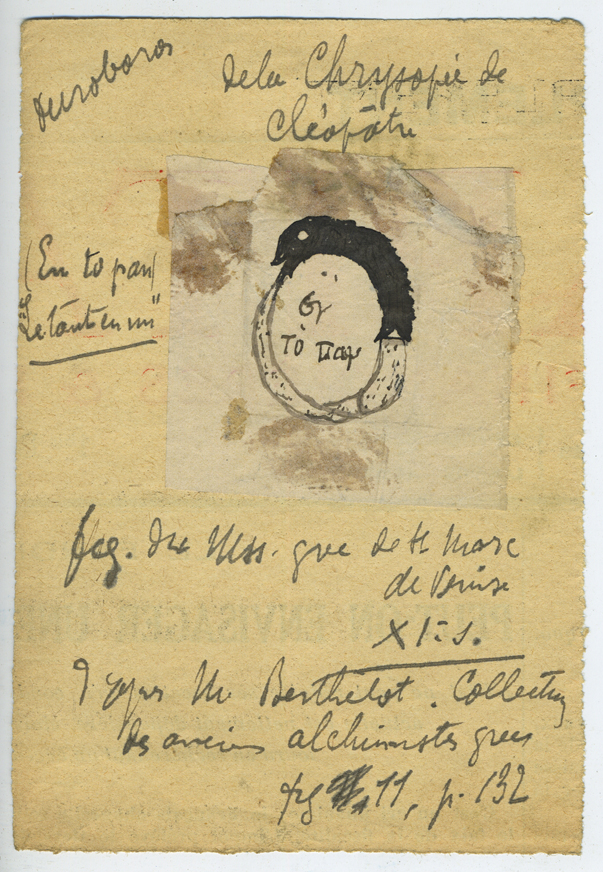 Ouroboros
de la Chrysopée de
Cléopâtre
(En to pan)
"Le tout en un"
ἓν
τὸ πᾶν
fig. du Mss. grec de St Marc
de Venise
XI e s.
D'après M. Berthelot. Collection
des anciens alchimistes grecs
fig 11, p. 132